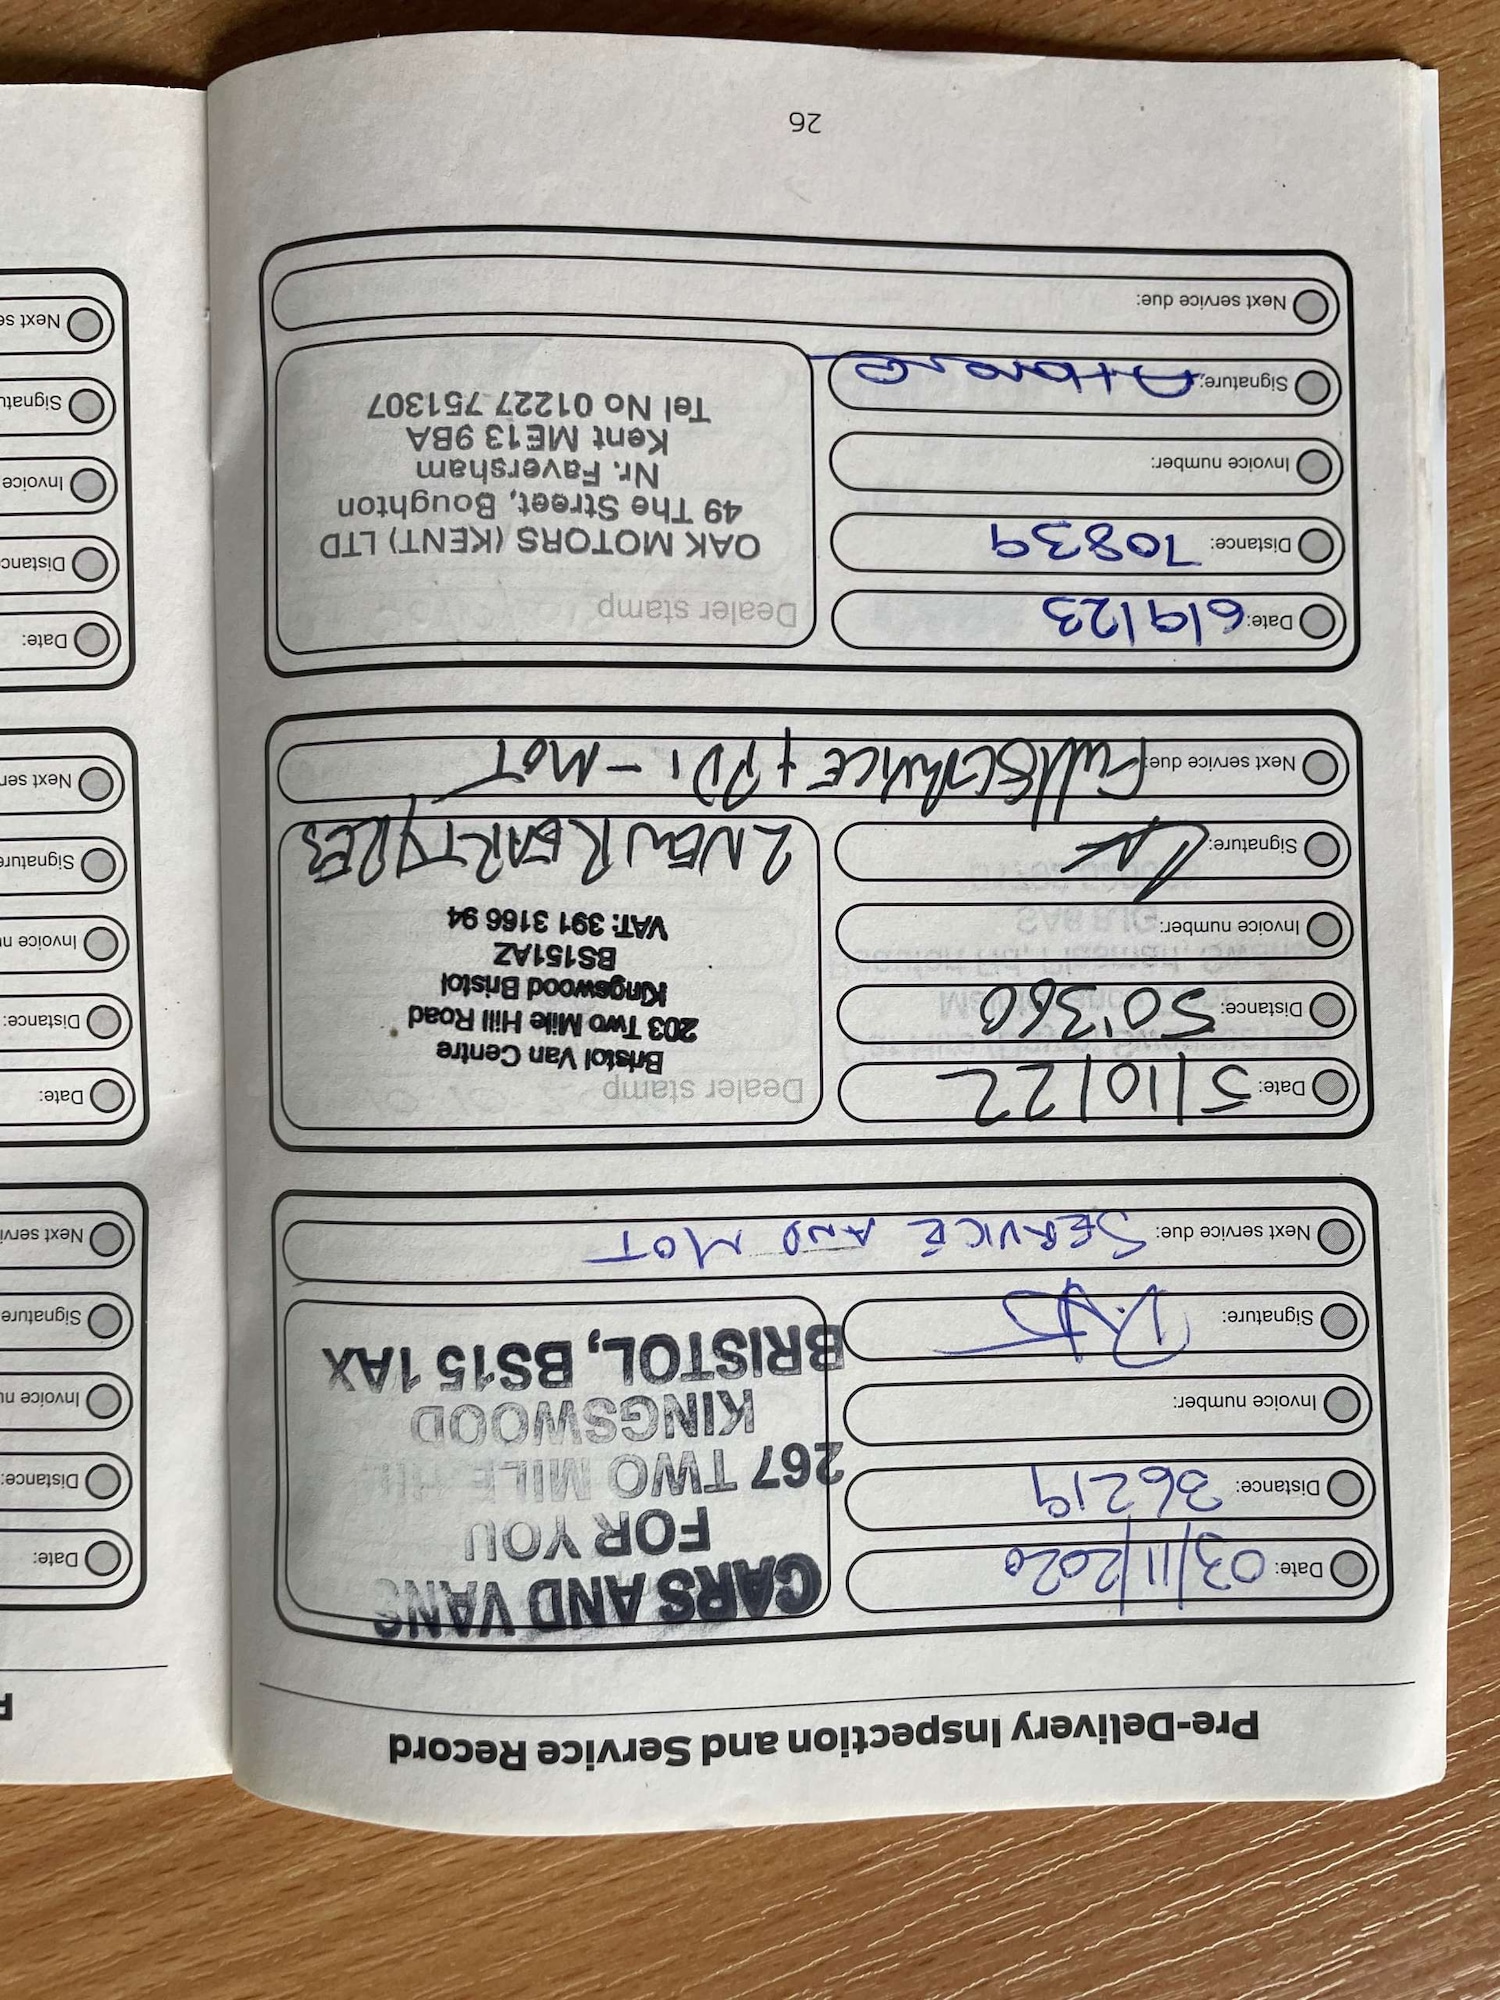 Pre-Delivery Inspection and Service Record
Date: 03/11/2020
Distance: 36219
Invoice number:
Signature:
Next service due: SERVICE AND MOT
CARS AND VANS
FOR YOU
267 TWO MILE HILL
KINGSWOOD
BRISTOL, BS15 1AX
Date: 5/10/22
Distance: 50'360
Invoice number:
Signature:
Next service due: Full SERVICE + PDI - MOT
Dealer stamp
Bristol Van Centre
203 Two Mile Hill Road
Kingswood Bristol
BS151AZ
VAT: 391 3166 94
2 NEW REAR TYRES
Date: 6/9/23
Distance: 70839
Invoice number:
Signature:
Next service due:
Dealer stamp
OAK MOTORS (KENT) LTD
49 The Street, Boughton
Nr. Faversham
Kent ME13 9BA
Tel No 01227 751307
26
Date:
Distance:
Invoice
Signature
Next
Date:
Distance:
Invoice
Signature
Next
Date:
Distance
Invoice
Next